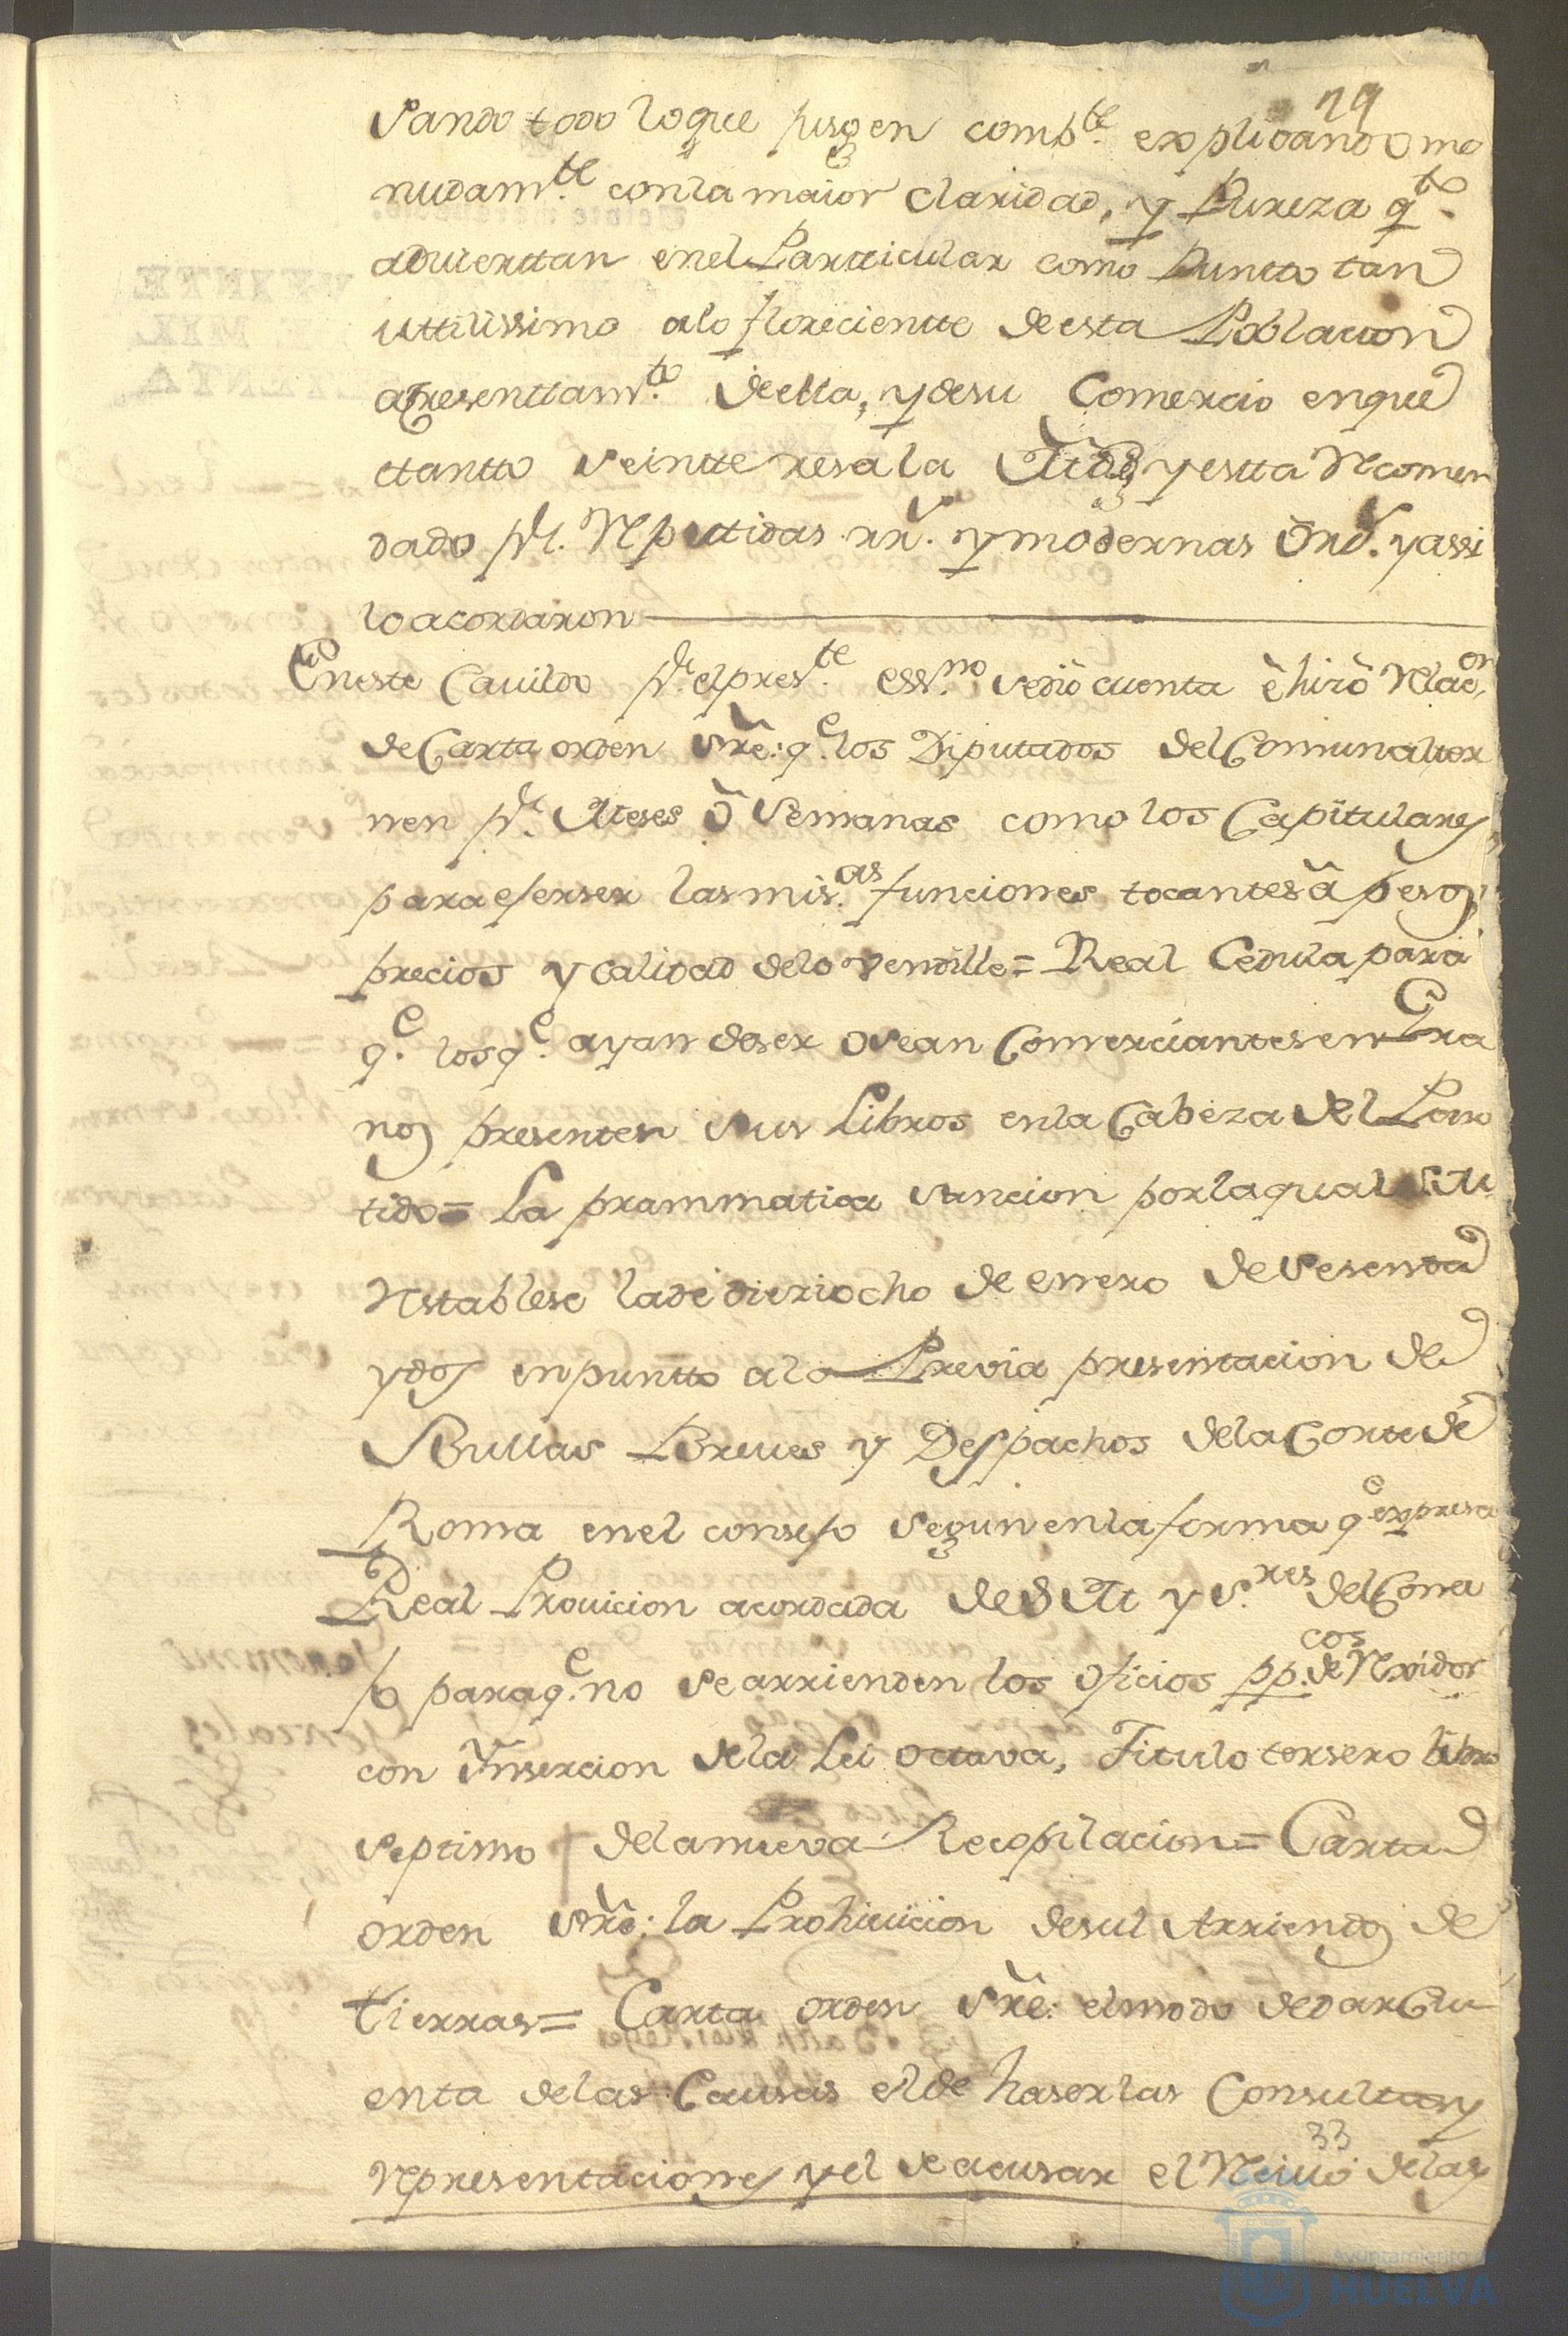 29
sando todo loque jusgen combte. explicando me
nudamte. conla maior claridad, y Pureza qto.
adviertan enel Partticular como Puntto tan
uttilissimo alo floreciente deesta Poblacion
acresenttamto. deella, ydesu Comercio enque
ttantto se intteresa la y estta Recomen
dado pr. Repettidas rrs. y modernas Ords. yassi
lo acordaron
Eneste Cavildo pr. elpreste. essno. sedió cuenta é hizo Relaon.
de Carta orden sre: qe. los Diputados del Comun alter
nen pr. Meses ó Semanas como los Capitulares
para eserser las mismas. funciones tocantes á pesos,
precios y calidad delo vendille = Real Cedula para
qe. los qe. ayan deser osean Comerciantes en Gra
nos presenten sus Libros enla Cabeza del Parti
tido = La prammatica sancion porla qual S. M.
Restablese lade dieziocho de enero de sesenta
ydos enpuntto ala Previa presentacion de
Bullas Breves y Despachos dela Corte de
Roma enel consejo segun enla forma qe expresa
Real Provicion acordada de S M y Sres. del Conse
jo paraqe. no searrienden los oficios ppcos. de Rexidor
con Ynsercion dela Lei octava, Titulo tersero libro
septimo dela nueva Recopilacion = Carta
orden sre: la Prohivicion desul Arriendos de
tierras = Carta orden sre: elmodo dedar Cu
enta delas Causas elde haserlas Consultas y
Representaciones y el de acusar el Recivo delas
33
Ayuntamiento de
HUELVA